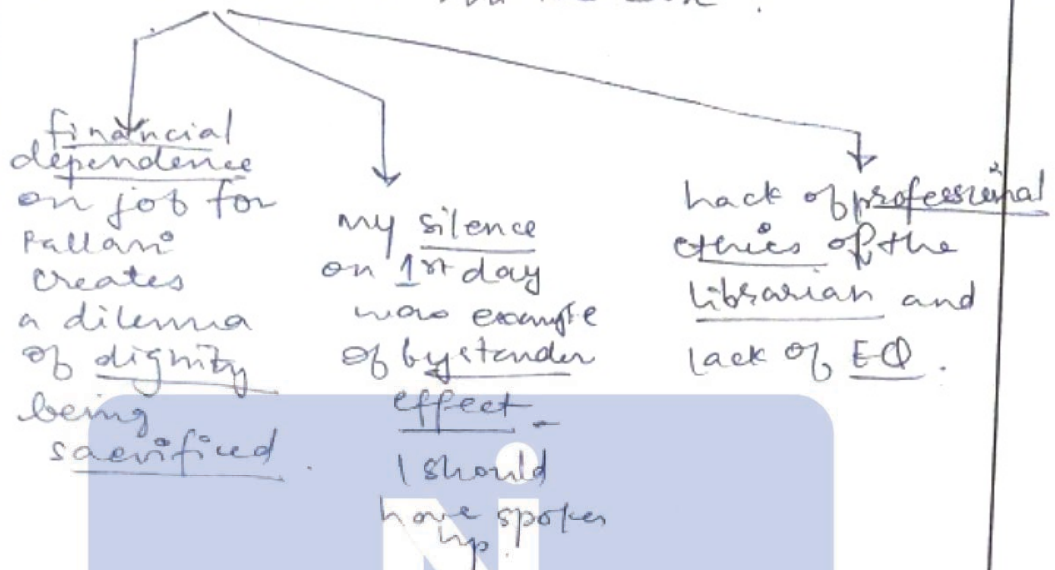 financial
dependence
on job for
Pallavi
creates
a dilemma
of dignity
being
sacrificed.
my silence
on 1st day
was example
of bystander
effect -
I should
have spoken
up.
Lack of professional
ethics of the
librarian and
lack of EQ.